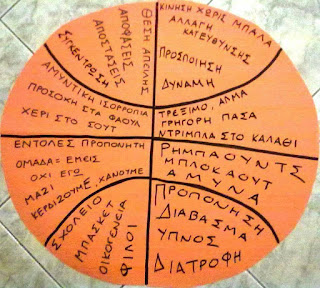 ΘΕΣΗ ΑΠΕΙΛΗΣ
ΑΠΟΦΑΣΕΙΣ
ΑΠΟΣΤΑΣΕΙΣ
ΣΥΓΚΕΝΤΡΩΣΗ
ΚΙΝΗΣΗ ΧΩΡΙΣ ΜΠΑΛΑ
ΑΛΛΑΓΗ
ΚΑΤΕΥΘΥΝΣΗΣ
ΠΡΟΣΠΟΙΗΣΗ
ΔΥΝΑΜΗ
ΑΜΥΝΤΙΚΗ ΙΣΟΡΡΟΠΙΑ
ΠΡΟΣΟΧΗ ΣΤΑ ΦΑΟΥΛ
ΧΕΡΙ ΣΤΟ ΣΟΥΤ
ΤΡΕΞΙΜΟ, ΑΛΜΑ
ΓΡΗΓΟΡΗ ΠΑΣΑ
ΝΤΡΙΜΠΛΑ ΣΤΟ ΚΑΛΑΘΙ
ΕΝΤΟΛΕΣ ΠΡΟΠΟΝΗΤΗ
ΟΜΑΔΑ = ΕΜΕΙΣ
ΟΧΙ ΕΓΩ
ΜΑΖΙ
ΚΕΡΔΙΖΟΥΜΕ, ΧΑΝΟΥΜΕ
ΡΗΜΠΑΟΥΝΤΣ
ΜΠΛΟΚΑΟΥΤ
ΑΜΥΝΑ
ΣΧΟΛΕΙΟ
ΜΠΑΣΚΕΤ
ΟΙΚΟΓΕΝΕΙΑ
ΦΙΛΟΙ
ΠΡΟΠΟΝΗΣΗ
ΔΙΑΒΑΣΜΑ
ΥΠΝΟΣ
ΔΙΑΤΡΟΦΗ